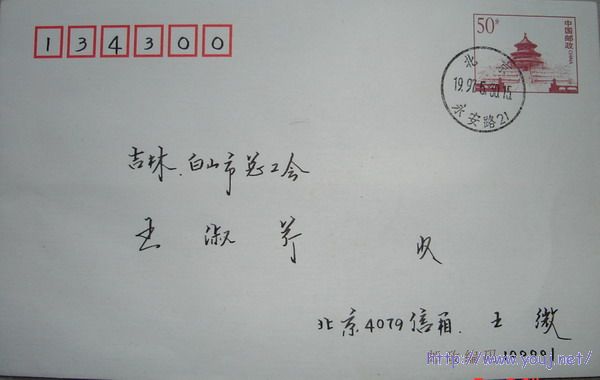 134300
50分
中国邮政
CHINA
北京
1997.5.30.15
永安路21
吉林.白山市总工会
王淑芳 收
北京4079信箱. 王微
邮政编码
http://www.youj.net/